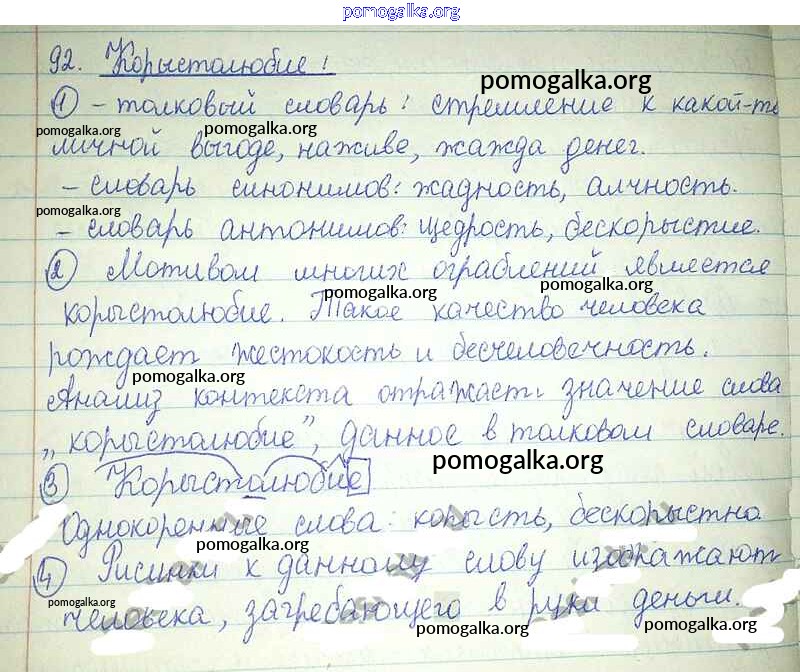 pomogalka.org
92. Корыстолюбие!
pomogalka.org
1 - толковый словарь: стремление к какой-то
pomogalka.org pomogalka.org
личной выгоде, наживе, жажда денег.
- словарь синонимов: жадность, алчность.
pomogalka.org
- словарь антонимов: щедрость, бескорыстие.
2 Мотивом многих ограблений является
pomogalka.org pomogalka.org
корыстолюбие. Такое качество человека
рождает жестокость и бесчеловечность.
pomogalka.org
Анализ контекста отражает значение слова
„корыстолюбие”, данное в толковом словаре.
pomogalka.org
3 Корыстолюбие
Однокоренные слова: корысть, бескорыстно
pomogalka.org
4 Рисунки к данному слову изображают
pomogalka.org
человека, загребающего в руки деньги.
pomogalka.org pomogalka.org